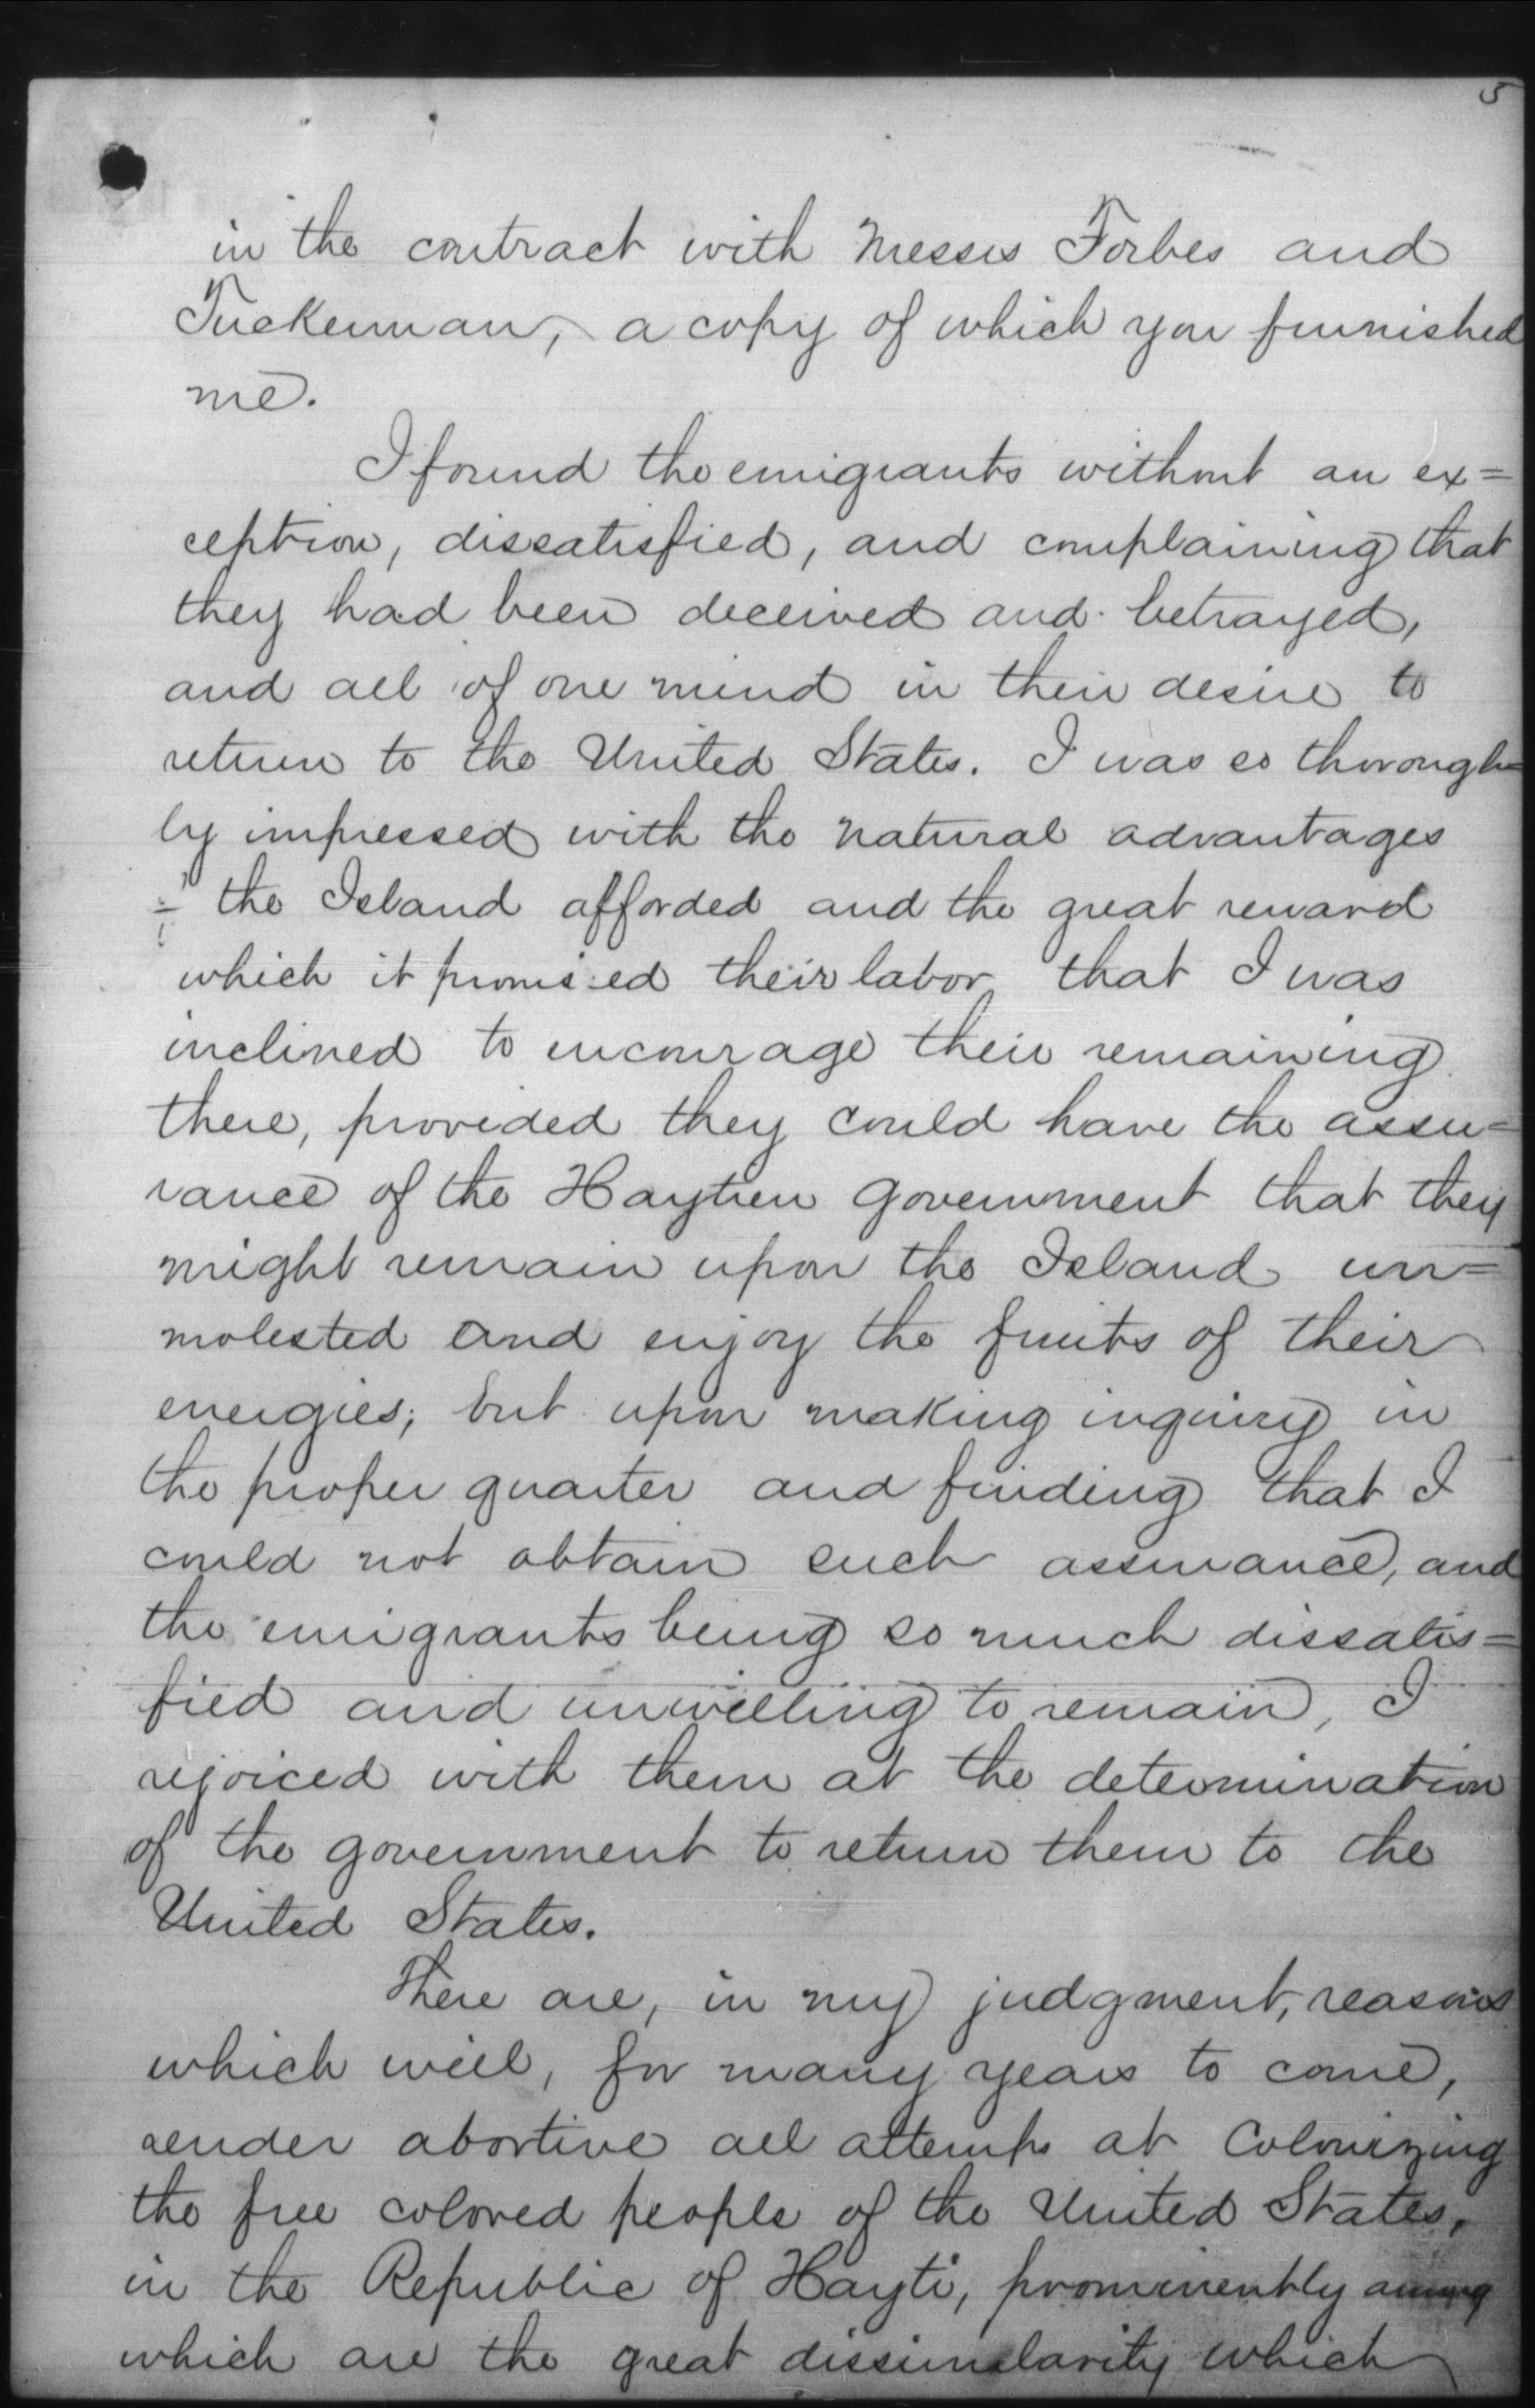 5
in the contract with Messrs Forbes and
Tuckerman, a copy of which you furnished
me.
I found the emigrants without an ex=
ception, dissatisfied, and complaining that
they had been deceived and betrayed,
and all of one mind in their desire to
return to the United States. I was so thorough=
ly impressed with the natural advantages
the Island afforded and the great reward
which it promised their labor that I was
inclined to encourage their remaining
there, provided they could have the assu=
rance of the Haytien Government that they
might remain upon the Island un=
molested and enjoy the fruits of their
energies; but upon making inquiry in
the proper quarter and finding that I
could not obtain such assurance, and
the emigrants being so much dissatis=
fied and unwilling to remain, I
rejoiced with them at the determination
of the government to return them to the
United States.
There are, in my judgment, reasons
which will, for many years to come,
render abortive all attempts at Colonizing
the free colored people of the United States,
in the Republic of Hayti, prominently among
which are the great dissimilarity which